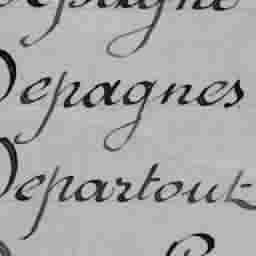 Depagne
Depagnes
Departout